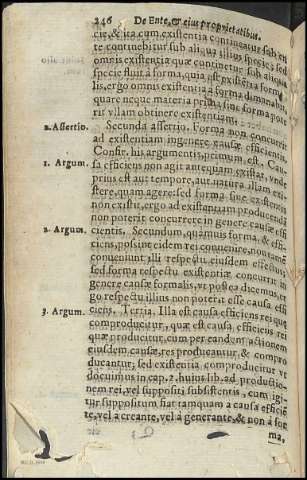 246 De Ente, & eius proprietatibus.
cie, & ita cum existentia contineatur sub en
te continebitur sub aliqua illius specie, sed
omnis existentia quæ continetur sub aliqua
specie fluit à forma, quia est existentia forma
lis, ergo omnis existentia à forma dimanabit,
quare neque materia prima sine forma pote
rit vllam obtinere existentiam.
2. Assertio. Secunda assertio. Forma non concurrit
ad existentiam in genere causæ efficientis.
1. Argum. Confir. his argumentis, primum est. Cau-
sa efficiens non agit antequam existat, vnde
prius est aut tempore, aut natura illam exi-
stere, quam agere: sed forma sine existentia
non existit, ergo ad existentiam producendā
non poterit concurrere in genere causæ effi
2. Argum. cientis. Secundum, quamuis forma, & effi-
ciens, possint eidem rei conuenire, non tamē
conueniunt illi respectu eiusdem effectus,
sed forma respectu existentiæ concurrit in
genere causæ formalis, vt postea dicemus, er
go respectu illius non poterit esse causa effi
3. Argum. ciens. Tertia. Illa est causa efficiens rei quę
comproducitur, quæ est causa efficiens rei
quæ producitur, cum per eandem actionem
eiusdem causæ, res producantur, & compro
ducantur, sed existentia comproducitur vt
docuimus in cap. 2. huius lib. ad productio-
nem rei, vel suppositi subsistentis, cum igi-
tur suppositum fiat tamquam a causa efficiē
te, vel a creante, vel à generante, & non à for
ma,